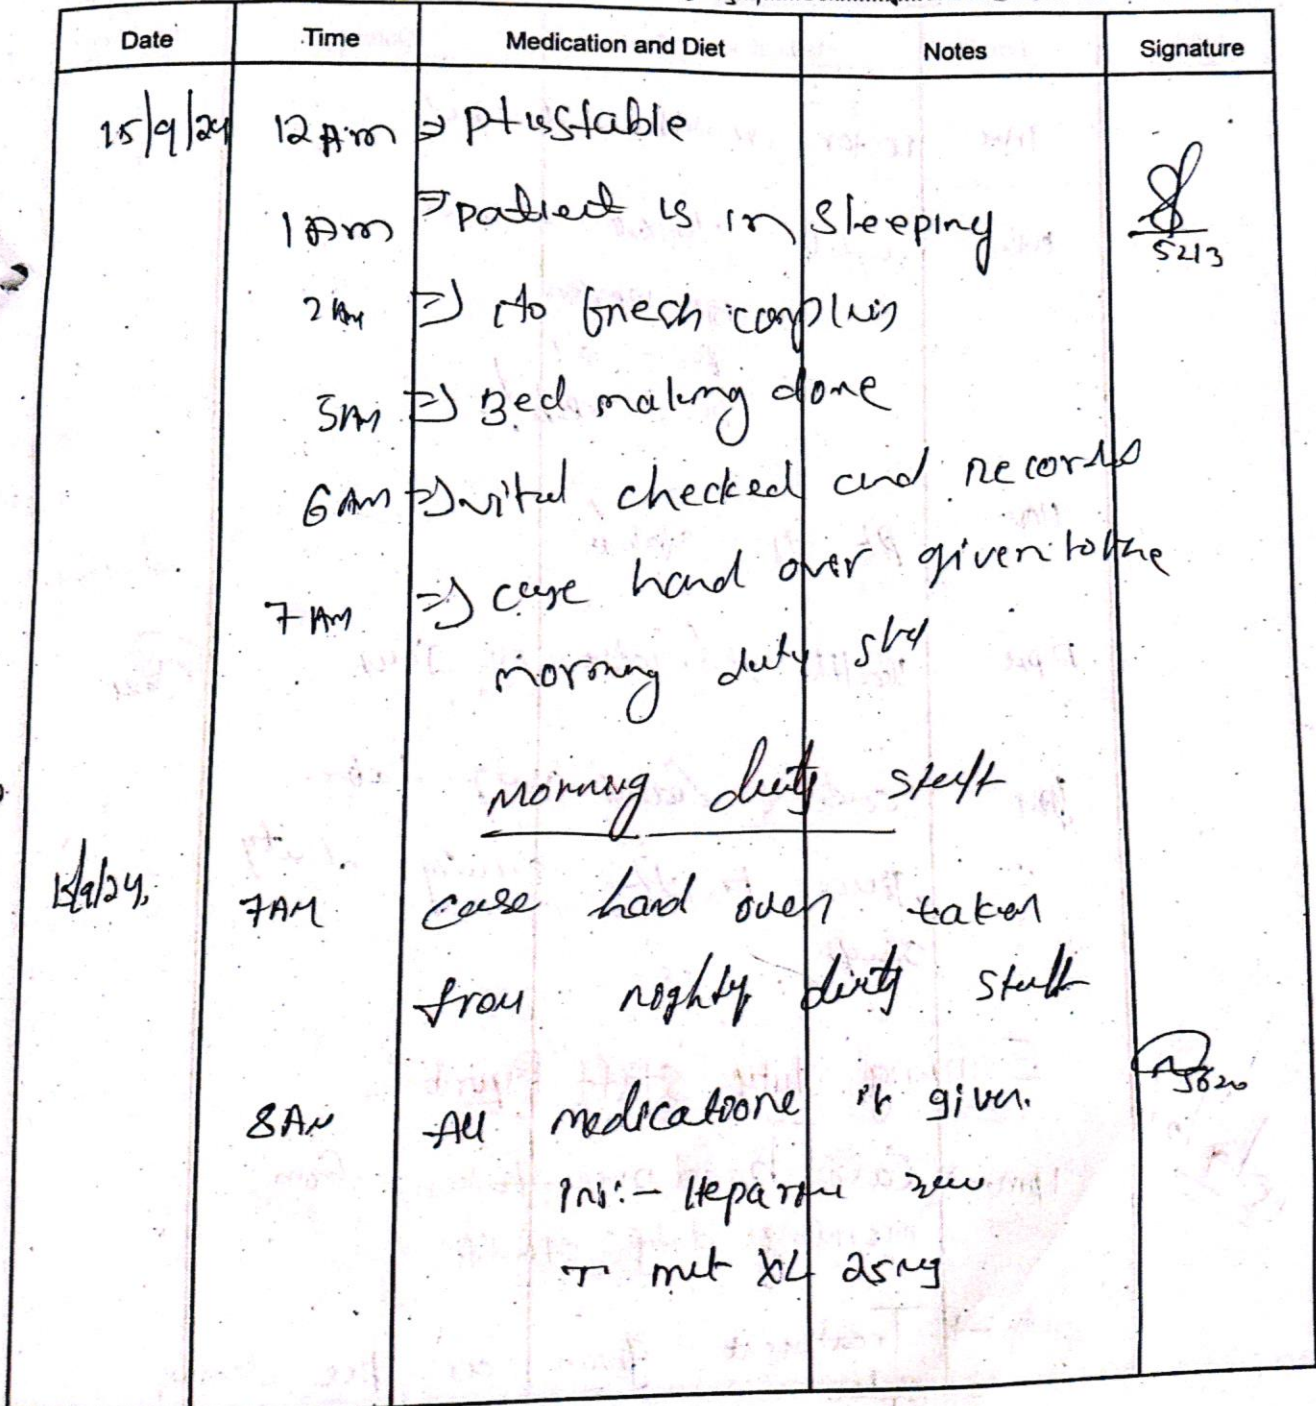 Date Time Medication and Diet Notes Signature
15/9/24 12 Am ⇒ Pt is stable
1 Am ⇒ patient is in sleeping
5213
2 AM ⇒ No fresh complain
5 AM ⇒ Bed making done
6 AM ⇒ vital checked and records
7 AM ⇒ case hand over given to the
morning duty
Morning duty staff
15/9/24. 7AM case hand over taken
from nighty duty staff
5620
8AM All medicatoone is given.
Inj:- Heparine
T. met XL 25mg